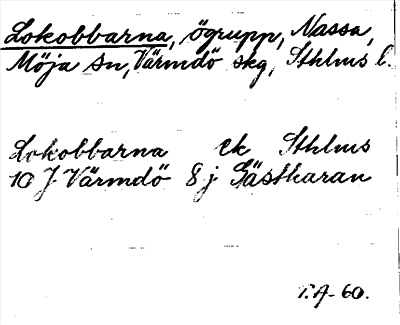 Lokobbarna, ögrupp, Nassa,
Möja sn, Värmdö skg, Sthlms l.
Lokobbarna ek Sthlms
10 J Värmdö 8 j Gästharan
T.A-60.